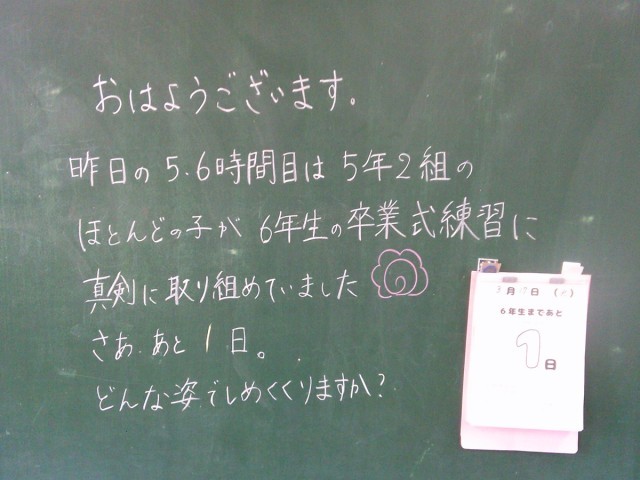 おはようございます。
昨日の5.6時間目は5年2組の
ほとんどの子が6年生の卒業式練習に
真剣に取り組めていました
さあ.あと1日。
どんな姿でしめくくりますか?
月 日( )
6年生まであと
1日